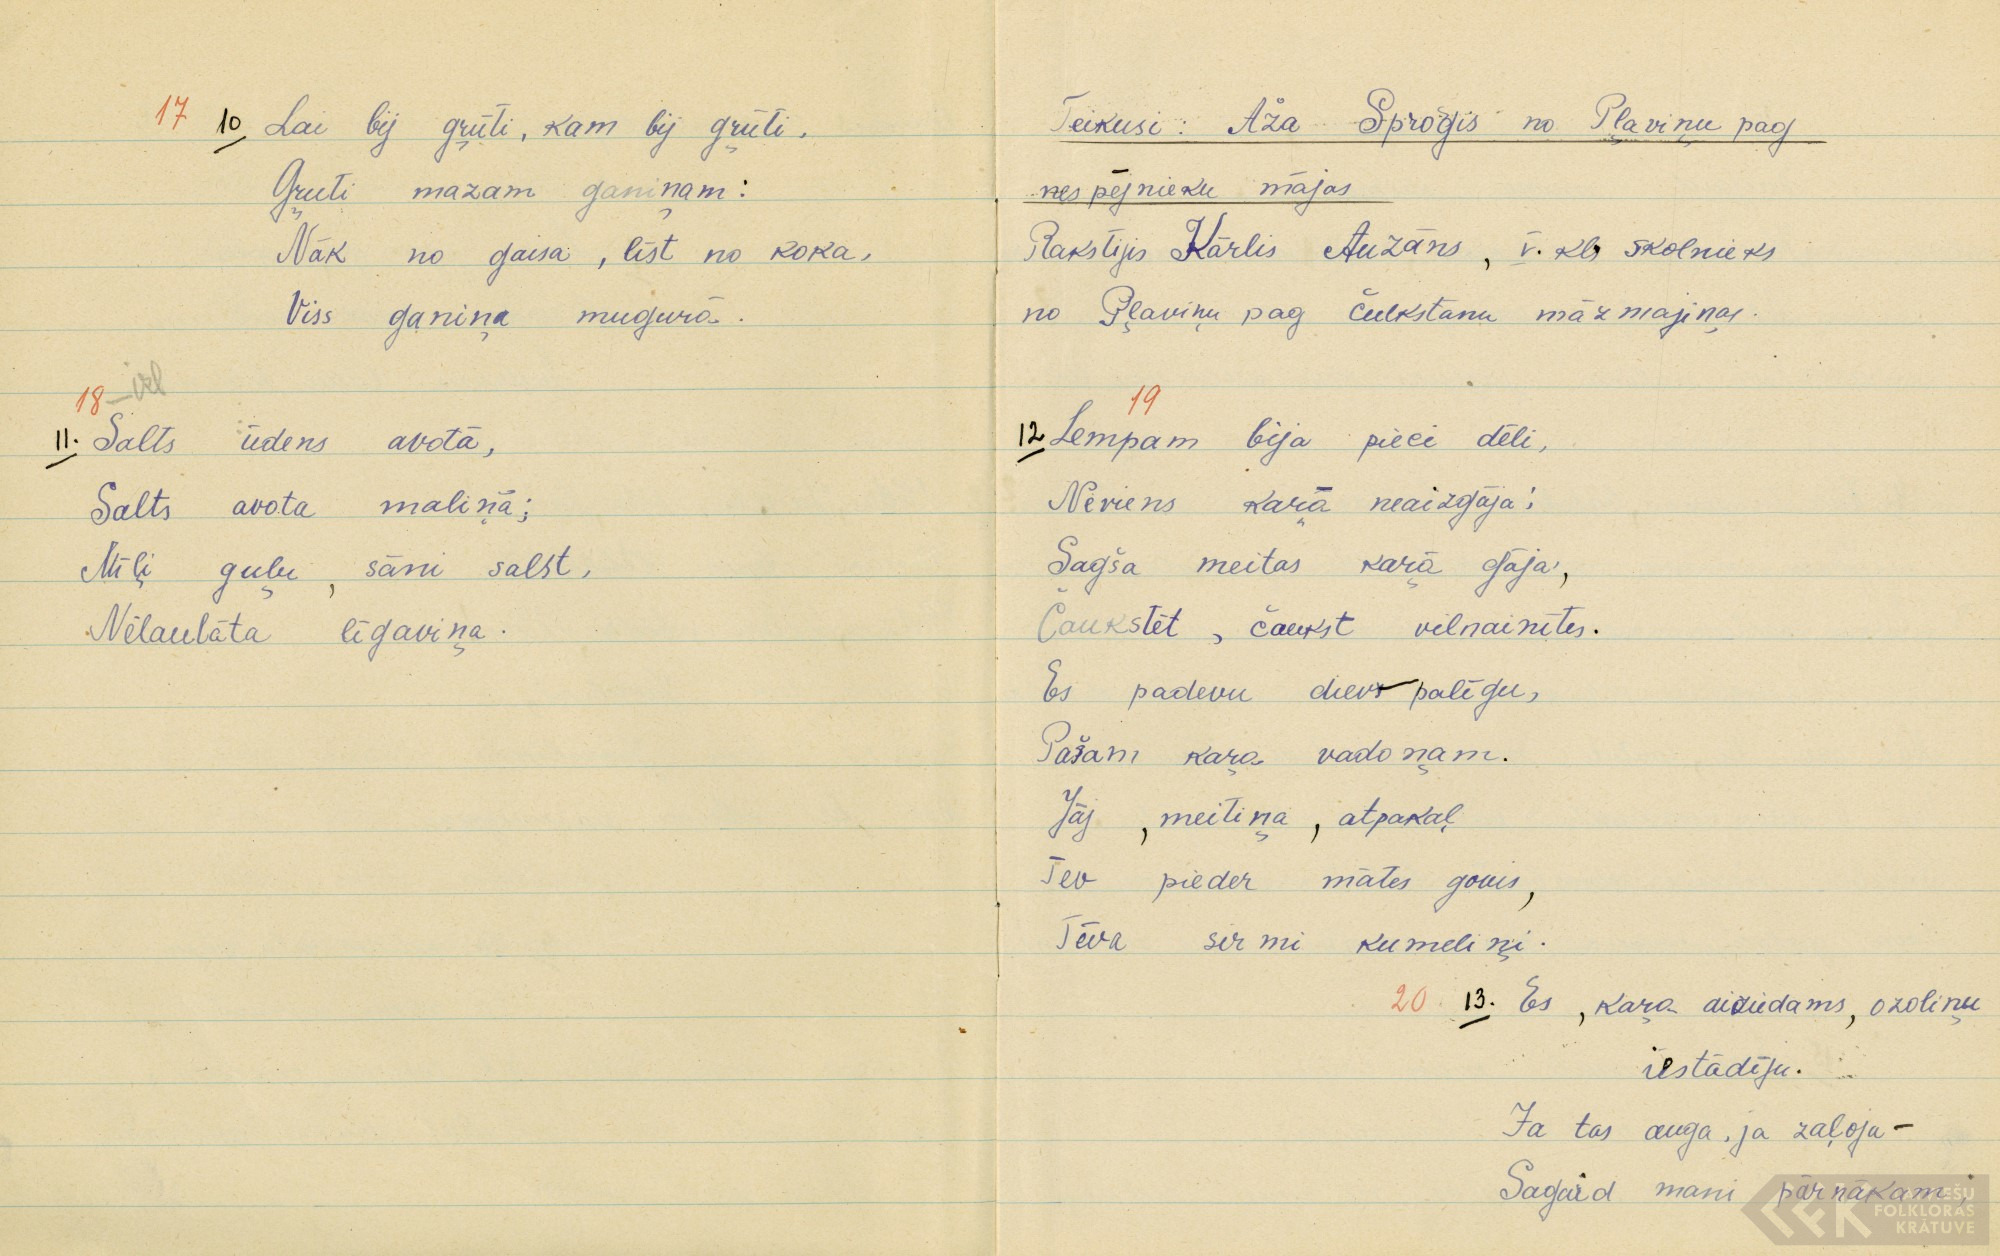 17 10 Lai bij gŗūti, kam bij gŗūti,
Gŗuti mazam ganiņam:
Nāk no gaisa, līst no koka,
Viss ganiņa mugurā.
18 –
11. Salts ūdens avotā,
Salts avota maliņā;
Mīļi guļu, sāni salst,
Nelaulāta līgaviņa.
Teikusi: Aža Sproģis no Pļaviņu pag
nespējnieku mājas
Rakstījis Kārlis Auzāns, V. kls skolnieks
no Pļaviņu pag Čulkstānu māzmajiņas.
19
12 Lempam bija pieci dēli,
Neviens kaŗā neaizgāja:
Sagša meitas kaŗā gāja,
Čaukstēt, čaukst vilnainītes.
Es padevu dievs palīgu,
Pašam kaŗa vadoņam.
Jāj, meitiņa, atpakaļ
Tev pieder mātes govis,
Tēva sirmi kumeliņi.
20 13. Es, kaŗa aiziedams, ozoliņu
iestādīju.
Ja tas auga, ja zaļoja –
Sagaid mani pārnākam;
LATVIEŠU
FOLKLORAS
KRĀTUVE